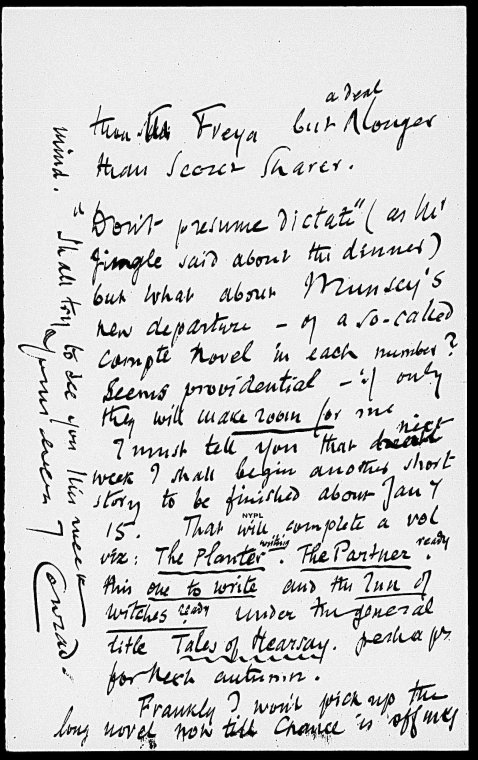 a deal
than Freya but longer
than Secret Sharer.
Don't presume dictate" (as Mr
Jingle said about the dinner)
but what about Munsey's
new departure — of a so-called
compte novel in each number?
Seems providential — if only
they will make room for me
I must tell you that next
week I shall begin another short
story to be finished about Jany
15. That will complete a vol
NYPL
viz: The Planter writing. The Partner ready.
this one to write and the Inn of
Witches ready under the general
title Tales of Hearsay. perhaps
for next autumn.
Frankly I won't pick up the
long novel now till Chance is off my
mind. Shall try to see you this week
Yours ever
J Conrad.